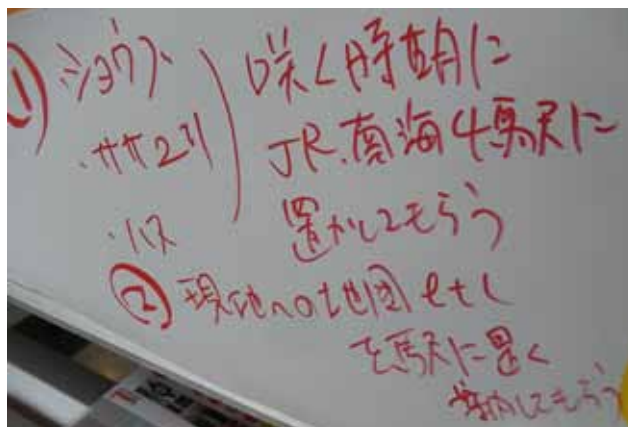 ① ・ショウブ
・ササユリ
・ハス
咲く時期に
JR.南海4駅に
置かしてもらう
② 現地への地図etc
を駅に置く
置かしてもらう